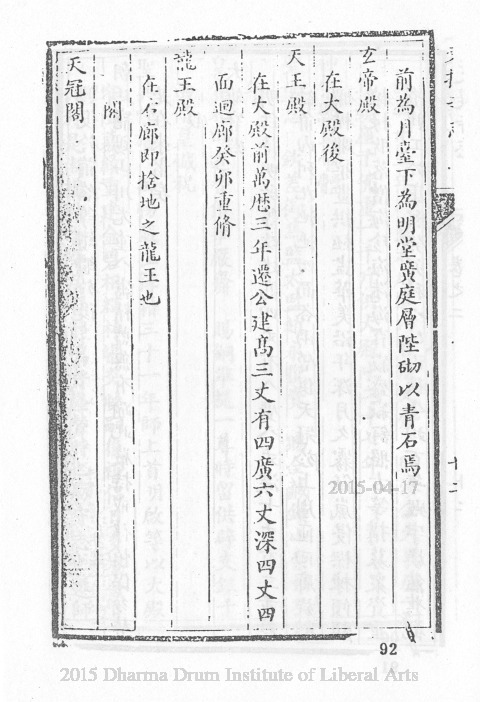 前為月臺下為明堂廣庭層陛砌以青石焉
玄帝殿
在大殿後
天王殿
在大殿前萬曆三年還公建高三丈有四廣六丈深四丈四
面迴廊癸卯重脩
龍王殿
在右廊即捨地之龍王也
閣
天冠閣
十二
2015-04-17
92
2015 Dharma Drum Institute of Liberal Arts